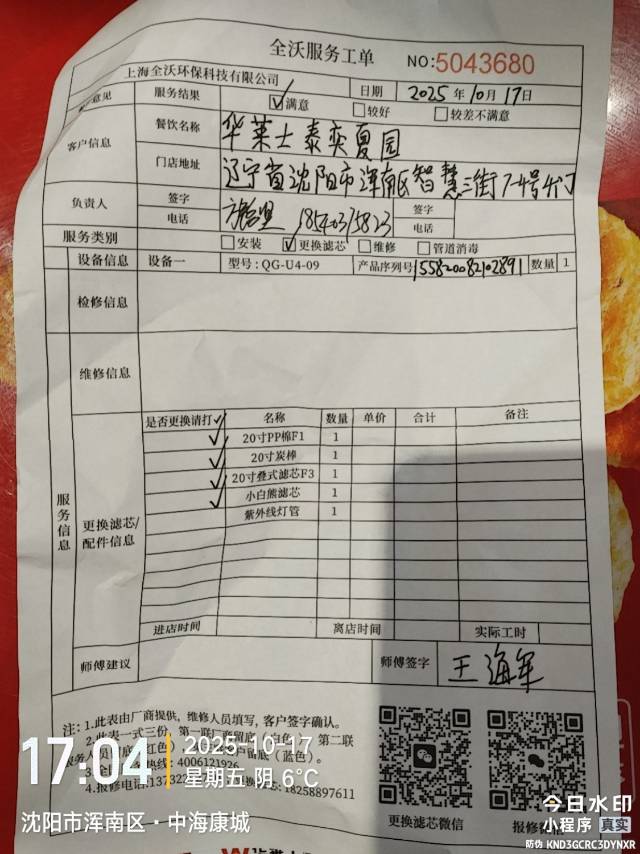 全沃服务工单 NO:5043680
上海全沃环保科技有限公司 日期 2025年10月17日
意见 服务结果 ☑满意 □较好 □较差不满意
客户信息 餐饮名称 华莱士泰奕夏园
门店地址 辽宁省沈阳市浑南区智慧三街7-4号4门
负责人 签字 签字
电话 18540375823 电话
服务类别 □安装 ☑更换滤芯 □维修 □管道消毒
设备信息 设备一 型号:QG-U4-09 产品序列号 155820082102891 数量 1
检修信息
维修信息
服务信息
更换滤芯/配件信息
是否更换请打✓ 名称 数量 单价 合计 备注
✓ 20寸PP棉F1 1
✓ 20寸炭棒 1
✓ 20寸叠式滤芯F3 1
✓ 小白熊滤芯 1
紫外线灯管 1
进店时间 离店时间 实际工时
师傅建议 师傅签字 王海军
注:1.此表由厂商提供,维修人员填写,客户签字确认。
2.此表一式三份,第一联 白色 第二联
红色 留底(蓝色)。
热线:4006121926
4.报修电话:13732 :18258897611
更换滤芯微信 报修微信
17:04 2025-10-17
星期五 阴 6°C
沈阳市浑南区·中海康城
今日水印
小程序 真实
防伪 KND3GCRC3DYNXR